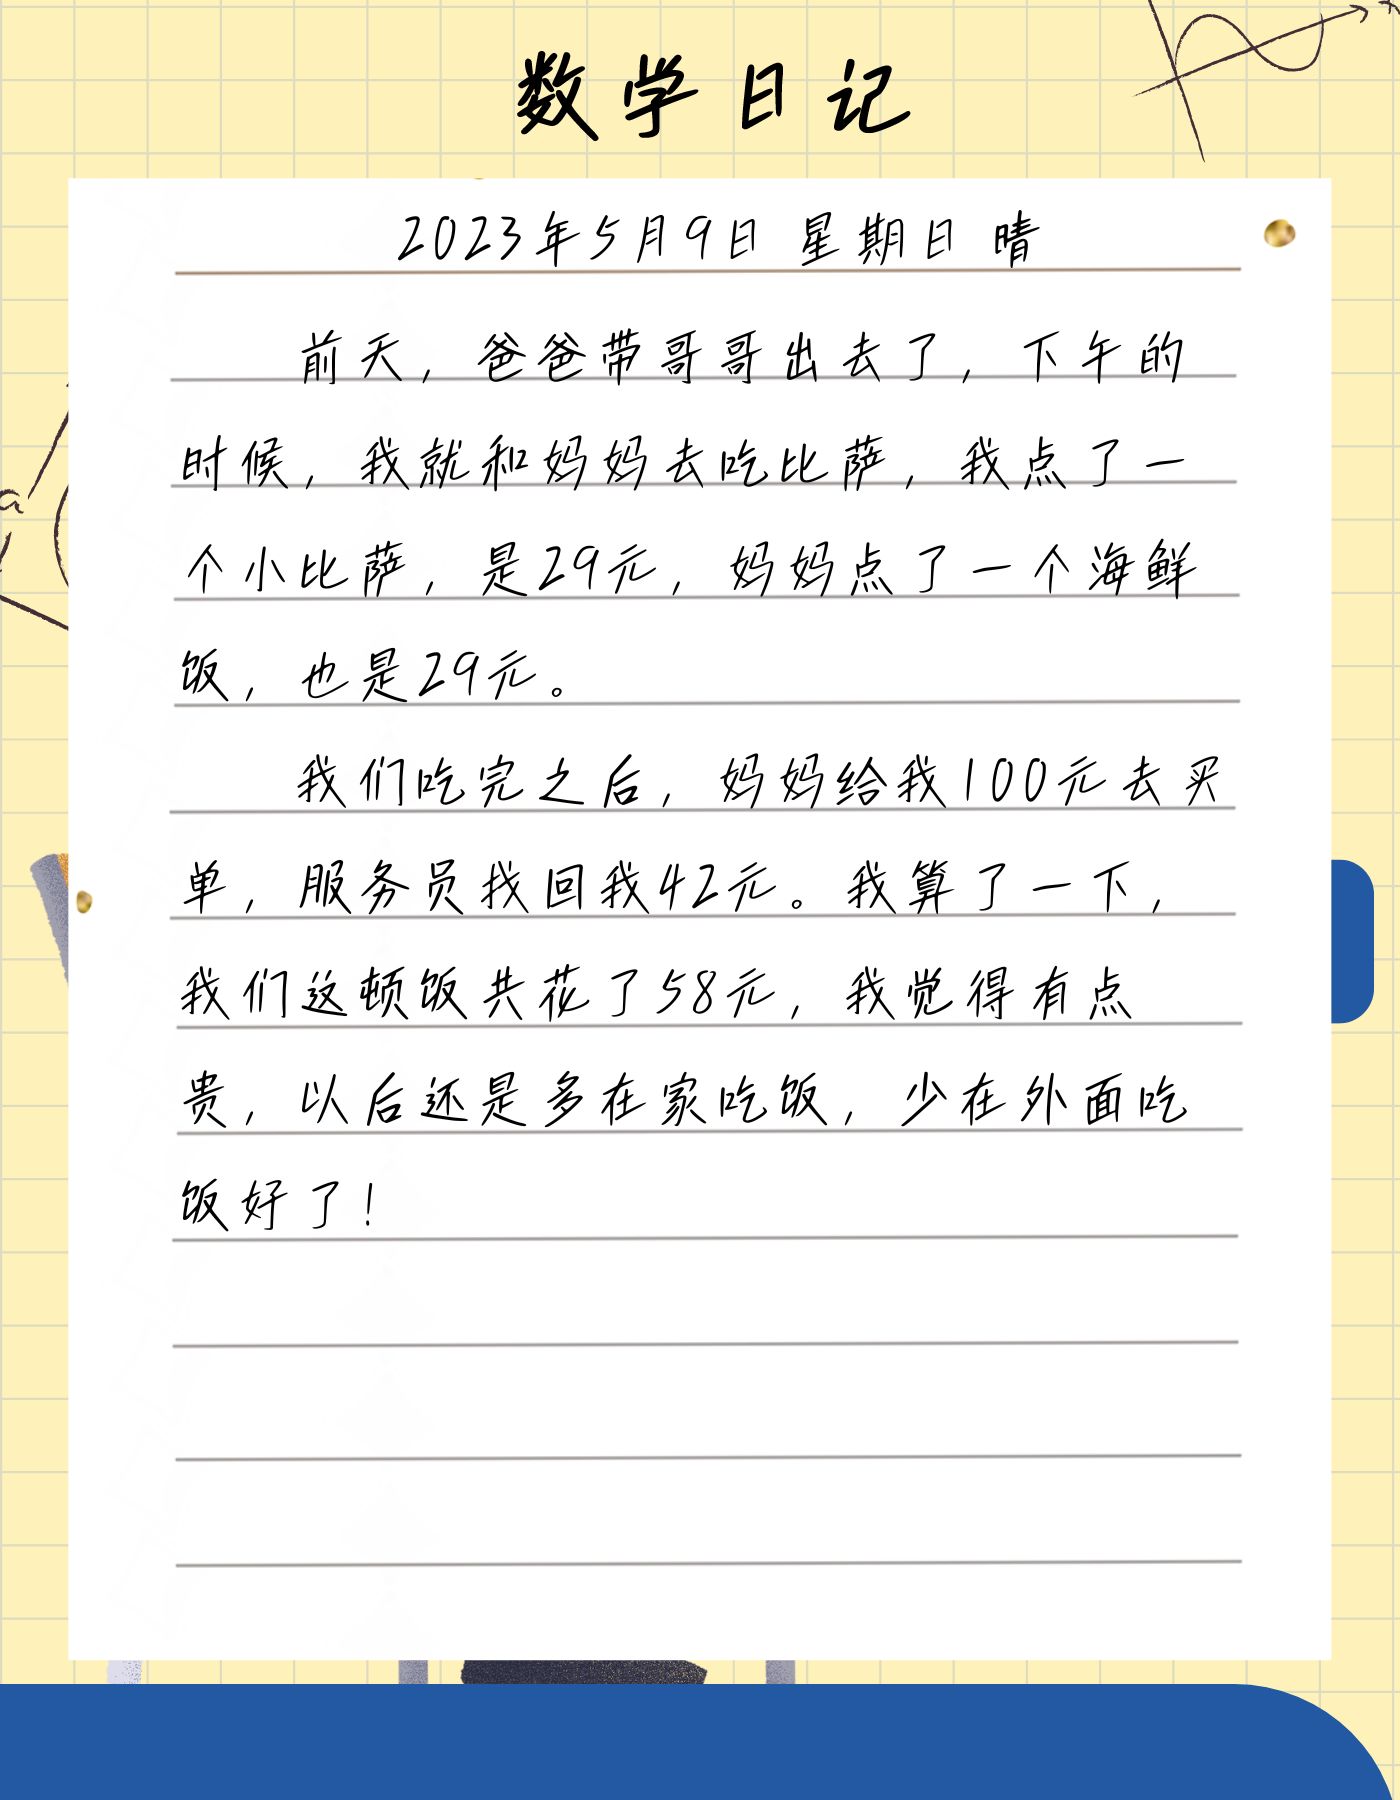 数学日记
2023年5月9日 星期日 晴
前天，爸爸带哥哥出去了，下午的
时候，我就和妈妈去吃比萨，我点了一
个小比萨，是29元，妈妈点了一个海鲜
饭，也是29元。
我们吃完之后，妈妈给我100元去买
单，服务员找回我42元。我算了一下，
我们这顿饭共花了58元，我觉得有点
贵，以后还是多在家吃饭，少在外面吃
饭好了！